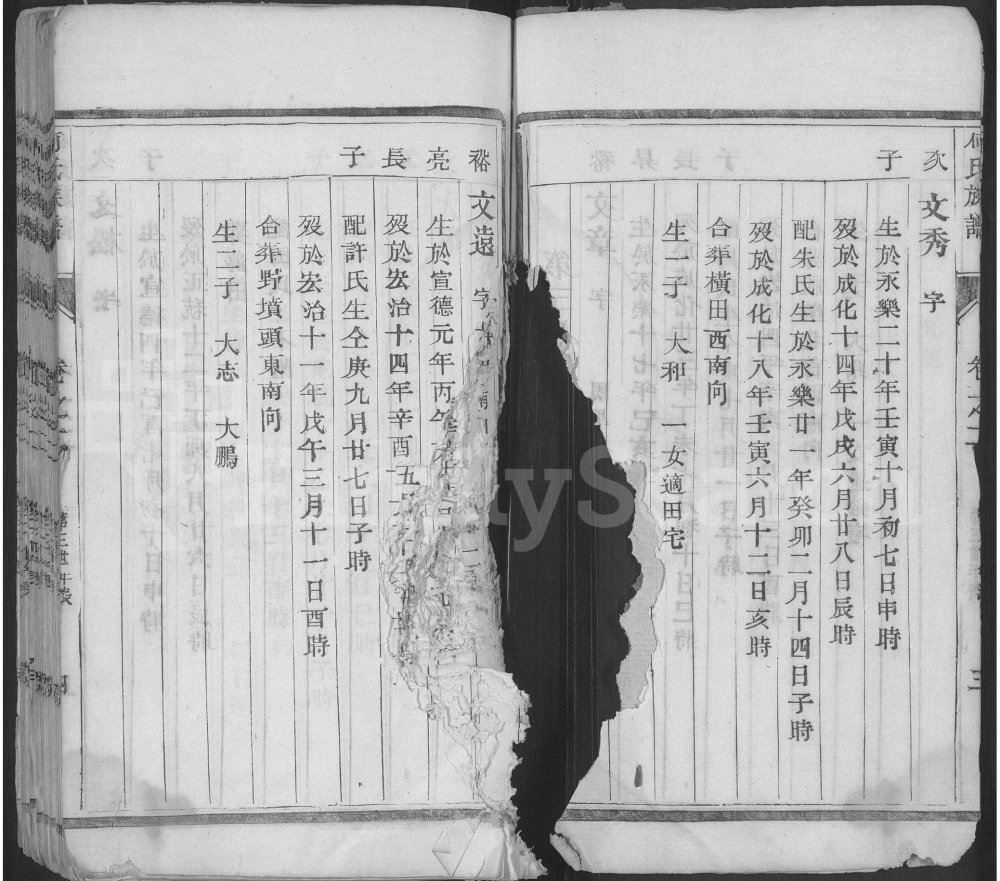 何氏族譜
卷之二
三
次子
文秀 字
生於永樂二十年壬寅十月初七日申時
歿於成化十四年戊戌六月廿八日辰時
配朱氏生於永樂廿一年癸卯二月十四日子時
歿於成化十八年壬寅六月十二日亥時
合葬橫田西南向
生一子 大和 一女適田宅
裕亮長子
文遠 字
生於宣德元年丙午
歿於宏治十四年辛酉五
配許氏生仝庚九月廿七日子時
歿於宏治十一年戊午三月十一日酉時
合葬野墳頭東南向
生二子 大志 大鵬